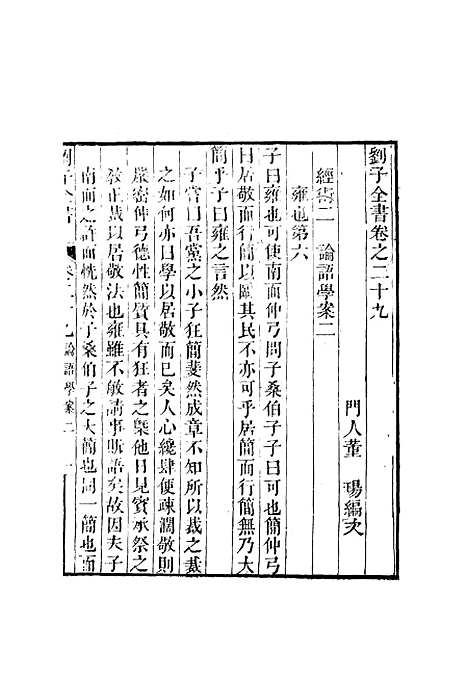 劉子全書卷之二十九
門人董瑒編次
經術二　論語學案二
雍也第六
子曰雍也可使南面仲弓問子桑伯子子曰可也簡仲弓
曰居敬而行簡以臨其民不亦可乎居簡而行簡無乃大
簡乎子曰雍之言然
子嘗曰吾黨之小子狂簡斐然成章不知所以裁之裁
之如何亦曰學以居敬而已矣人心纔肆便疎濶敬則
嚴密仲弓德性簡質具有狂者之槩他日見賓承祭之
敎正裁以居敬法也雍雖不敏請事斯語矣故因夫子
南面之許而恍然於子桑伯子之大簡也同一簡也而
劉子全書　卷二十九 論語學案二　一